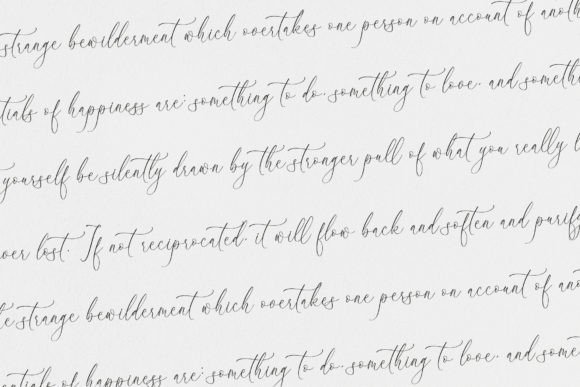 strange bewilderment which overtakes one person on account of anoth
ntials of happiness are: something to do, something to love, and someth
yourself be silently drawn by the stronger pull of what you really l
ver lost. If not reciprocated, it will flow back and soften and purify
he strange bewilderment which overtakes one person on account of ano
entials of happiness are: something to do, something to love, and some